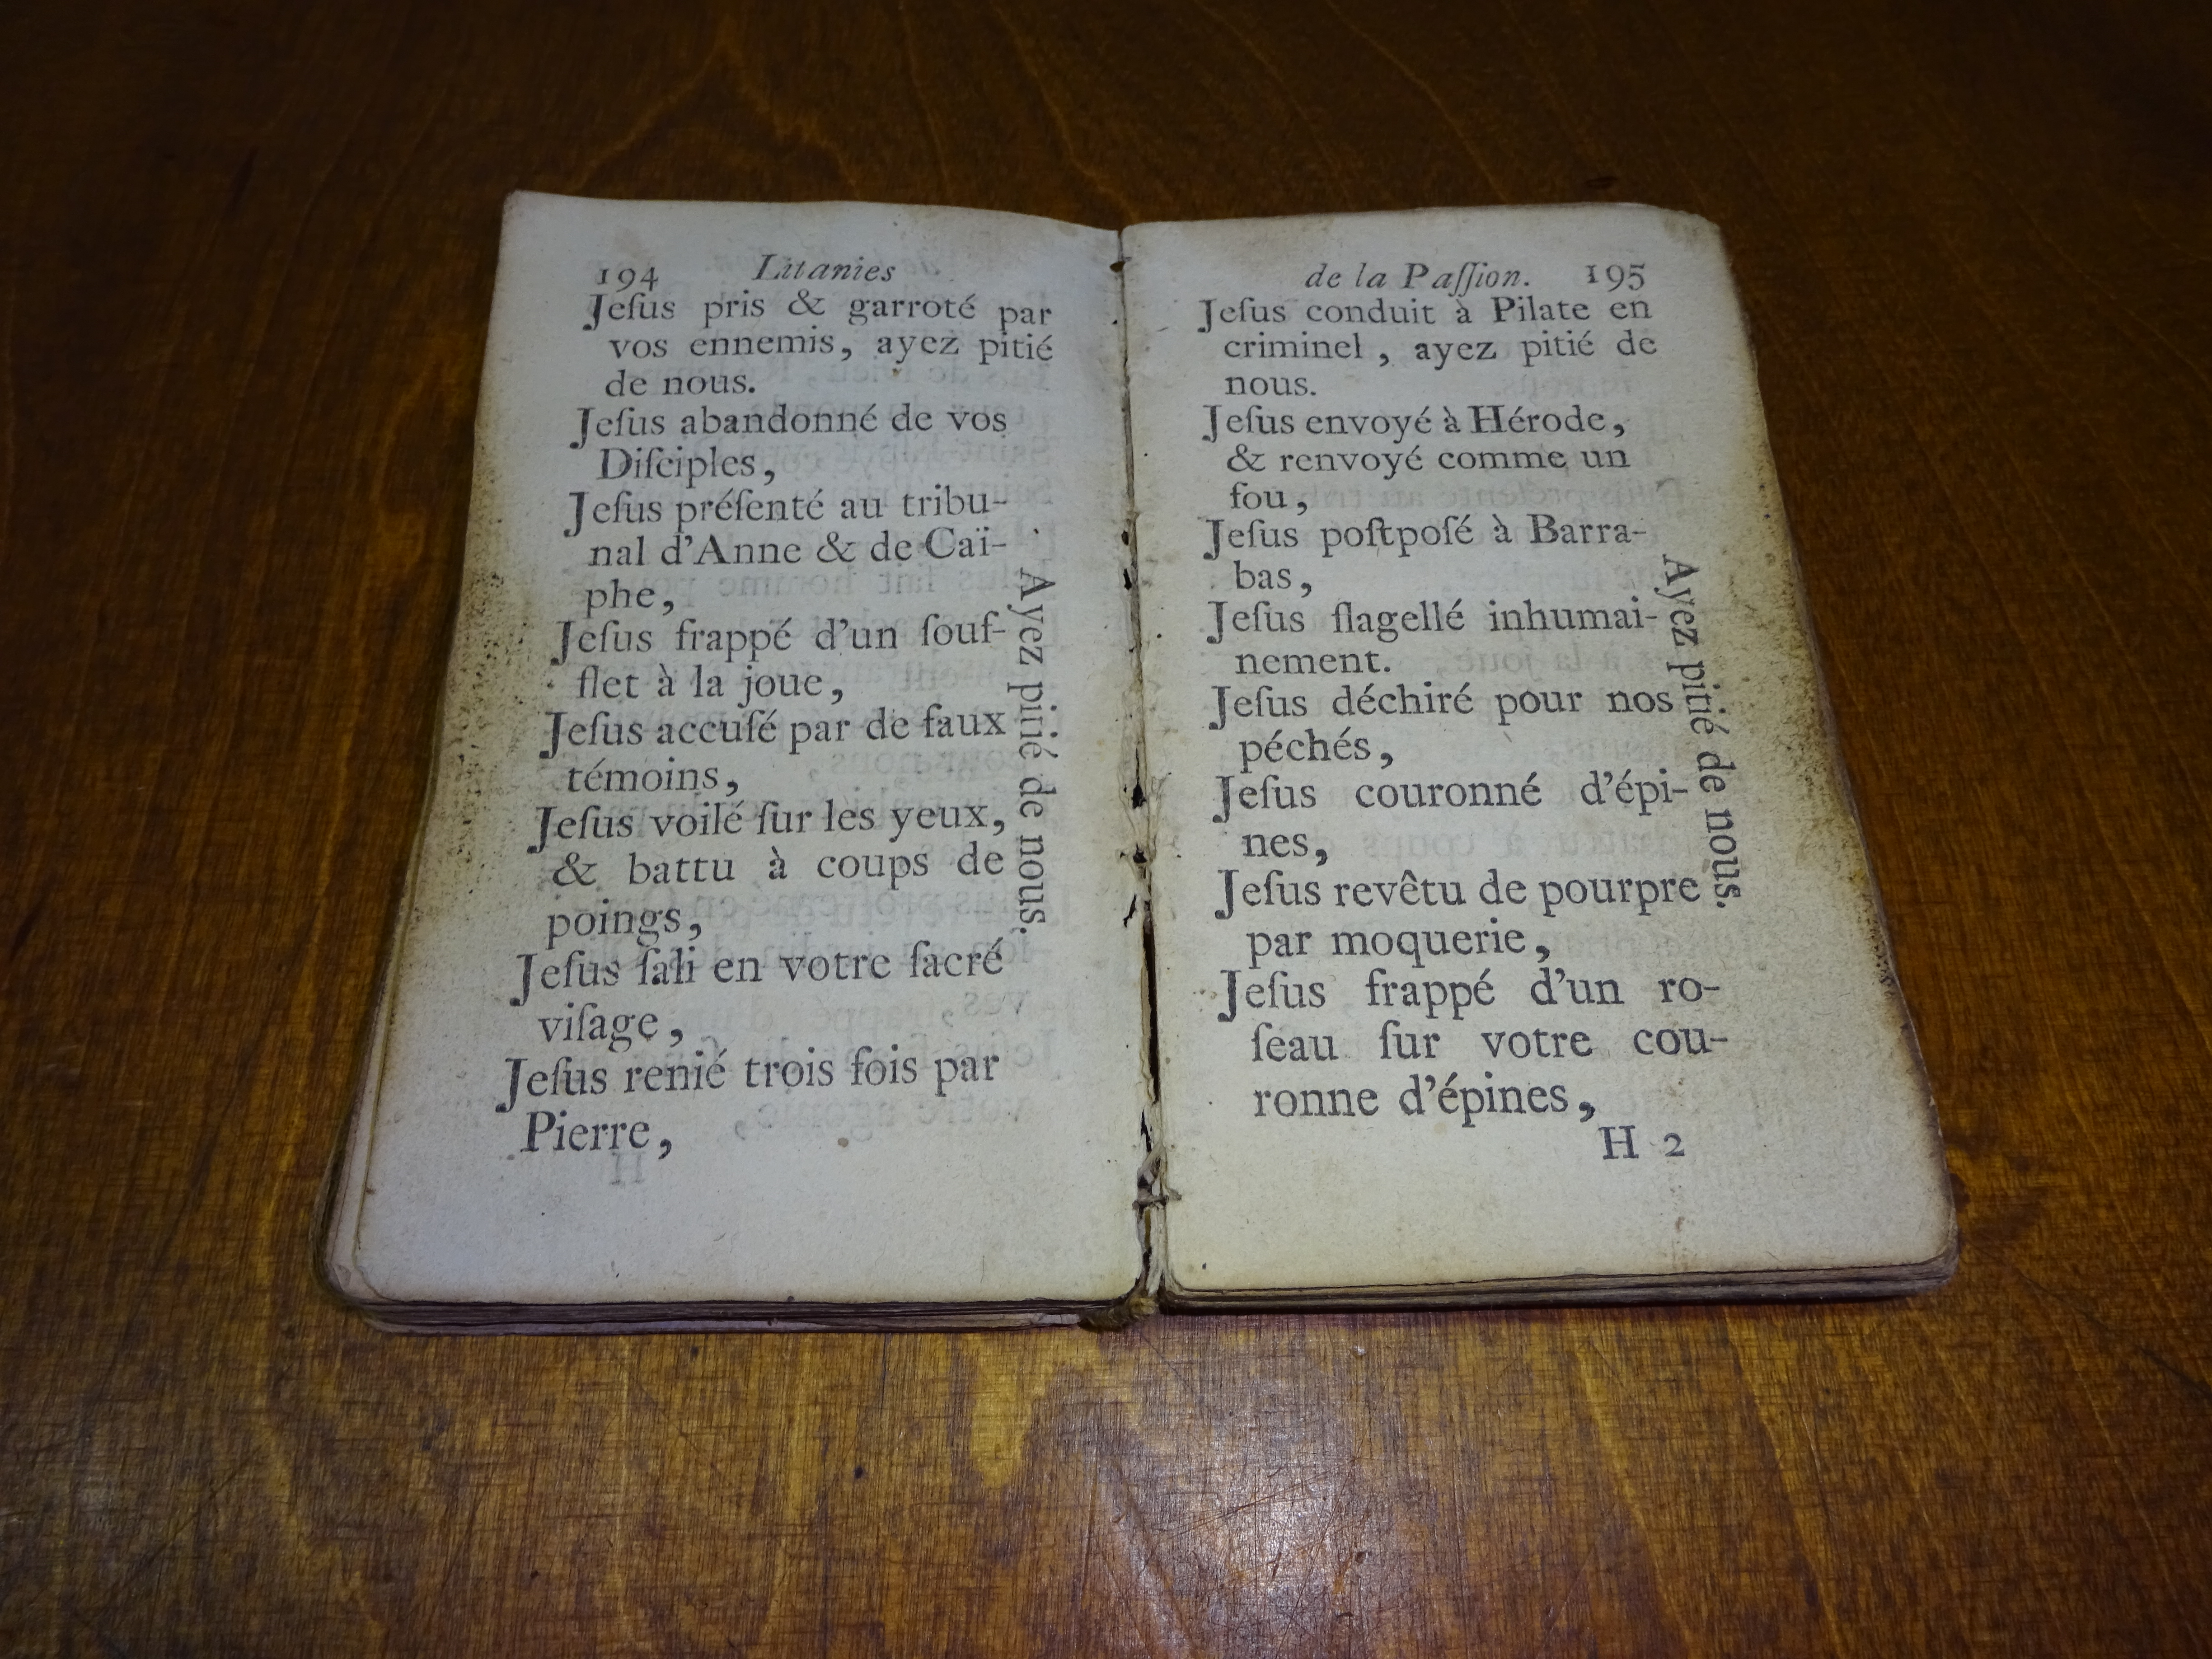 194 Litanies
Jeſus pris & garroté par
vos ennemis, ayez pitié
de nous.
Jeſus abandonné de vos
Diſciples,
Jeſus préſenté au tribu-
nal d'Anne & de Caï-
phe,
Jeſus frappé d'un ſouf-
flet à la joue,
Jeſus accuſé par de faux
témoins,
Jeſus voilé ſur les yeux,
& battu à coups de
poings,
Jeſus ſali en votre ſacré
viſage,
Jeſus renié trois fois par
Pierre,
Ayez pitié de nous.
de la Paſſion. 195
Jeſus conduit à Pilate en
criminel, ayez pitié de
nous.
Jeſus envoyé à Hérode,
& renvoyé comme un
fou,
Jeſus poſtpoſé à Barra-
bas,
Jeſus flagellé inhumai-
nement.
Jeſus déchiré pour nos
péchés,
Jeſus couronné d'épi-
nes,
Jeſus revêtu de pourpre
par moquerie,
Jeſus frappé d'un ro-
ſeau ſur votre cou-
ronne d'épines,
Ayez pitié de nous.
H 2